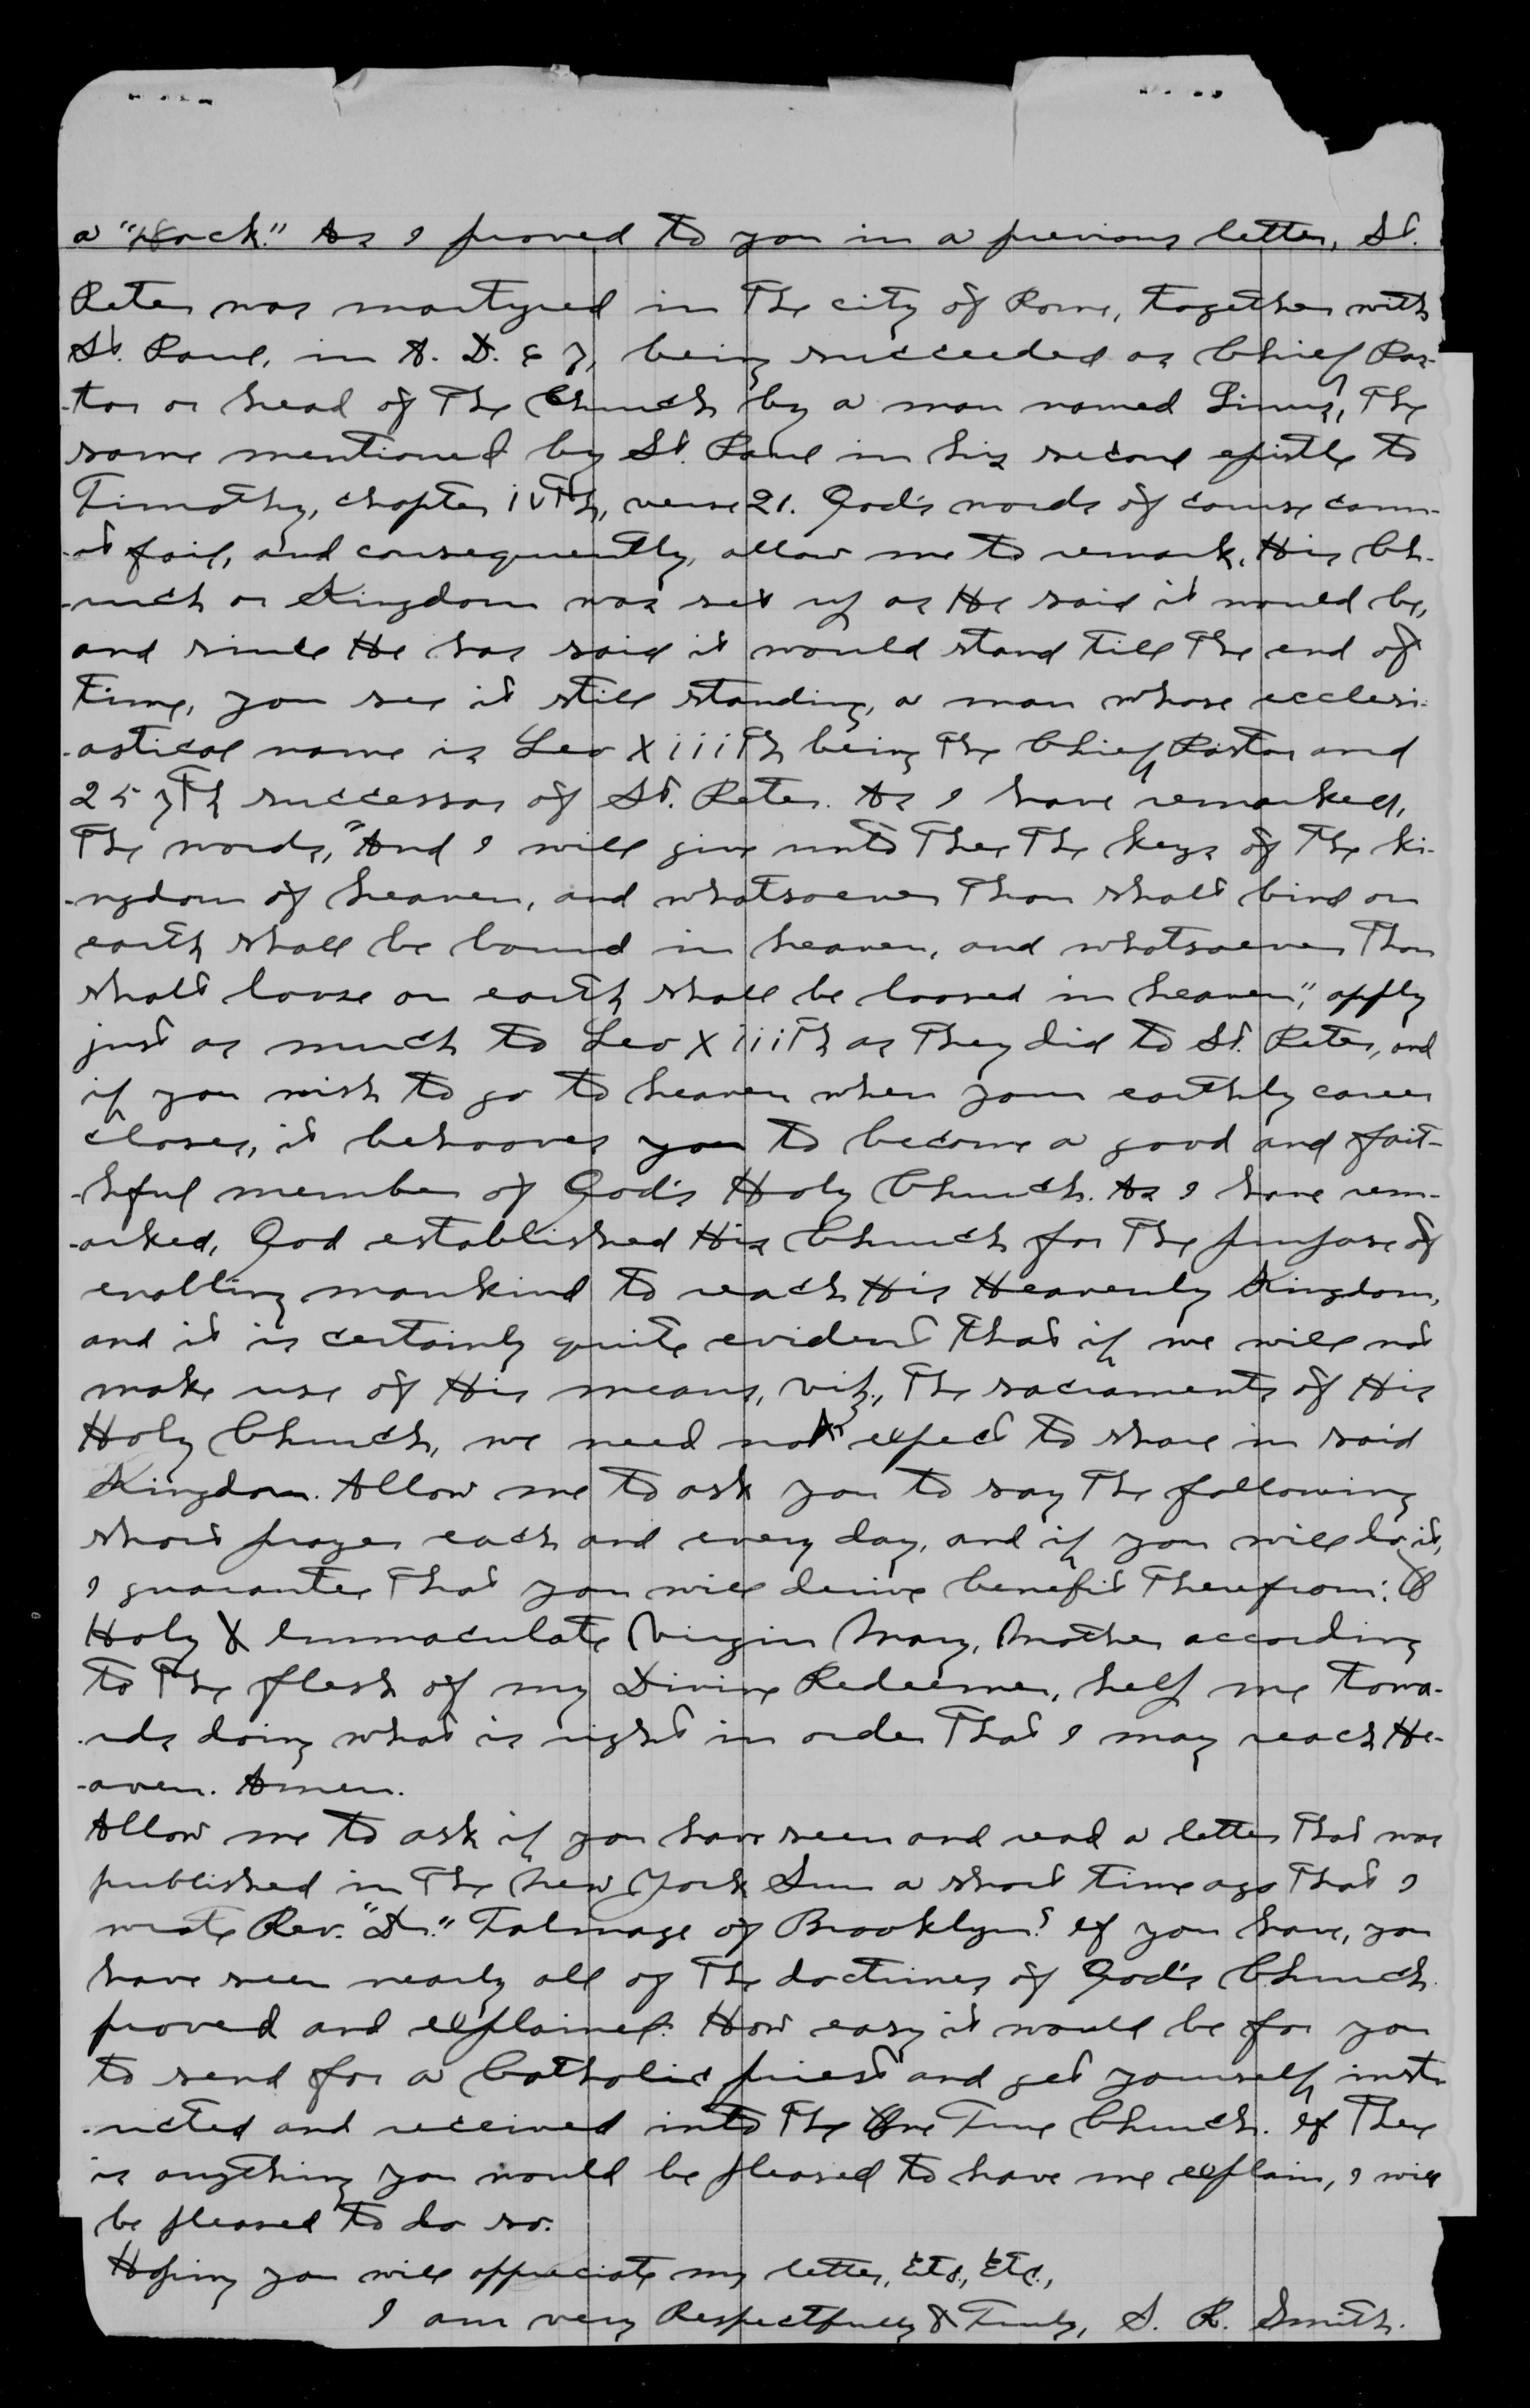 a "Rock." As I proved to you in a previous letter, St.
Peter was martyred in the city of Rome, together with
St. Paul, in A. D. 67, being succeeded as Chief Pas-
-tor or head of the Church by a man named Linus, the
same mentioned by St. Paul in his second epistle to
Timothy, chapter ivth, verse 21. God's words of course cann-
-ot fail, and consequently, allow me to remark, His Ch-
-urch or Kingdom was set up as He said it would be,
and since He has said it would stand till the end of
time, you see it still standing, a man whose ecclesi-
-astical name is Leo Xiiith being the Chief Pastor and
257th successor of St. Peter. As I have remarked,
the words, "And I will give unto thee the keys of the ki-
-ngdom of heaven, and whatsoever thou shalt bind on
earth shall be bound in heaven, and whatsoever thou
shalt loose on earth shall be loosed in heaven", apply
just as much to Leo Xiiith as they did to St. Peter, and
if you wish to go to heaven when your earthly career
closes, it behooves you to become a good and fait-
-hful member of God's Holy Church. As I have rem-
-arked, God established His Church for the purpose of
enabling mankind to reach His Heavenly Kingdom,
and it is certainly quite evident that if we will not
make use of His means, viz., the sacraments of His
Holy Church, we need not expect to share in said
Kingdom. Allow me to ask you to say the following
short prayer each and every day, and if you will do it,
I guarantee that you will derive benefit therefrom: O
Holy & Immaculate Virgin Mary, Mother according
to the flesh of my Divine Redeemer, help me towa-
-rds doing what is right in order that I may reach He-
-aven. Amen.
Allow me to ask if you have seen and read a letter that was
published in the New York Sun a short time ago that I
wrote Rev. "Dr." Talmage of Brooklyn? If you have, you
have seen nearly all of the doctrines of God's Church
proved and explained. How easy it would be for you
to send for a Catholic priest and get yourself instr-
-ucted and received into the One True Church. If there
is anything you would be pleased to have me explain, I will
be pleased to do so.
Hoping you will appreciate my letter, Etc., Etc.,
I am very Respectfully & Truly, S. R. Smith.